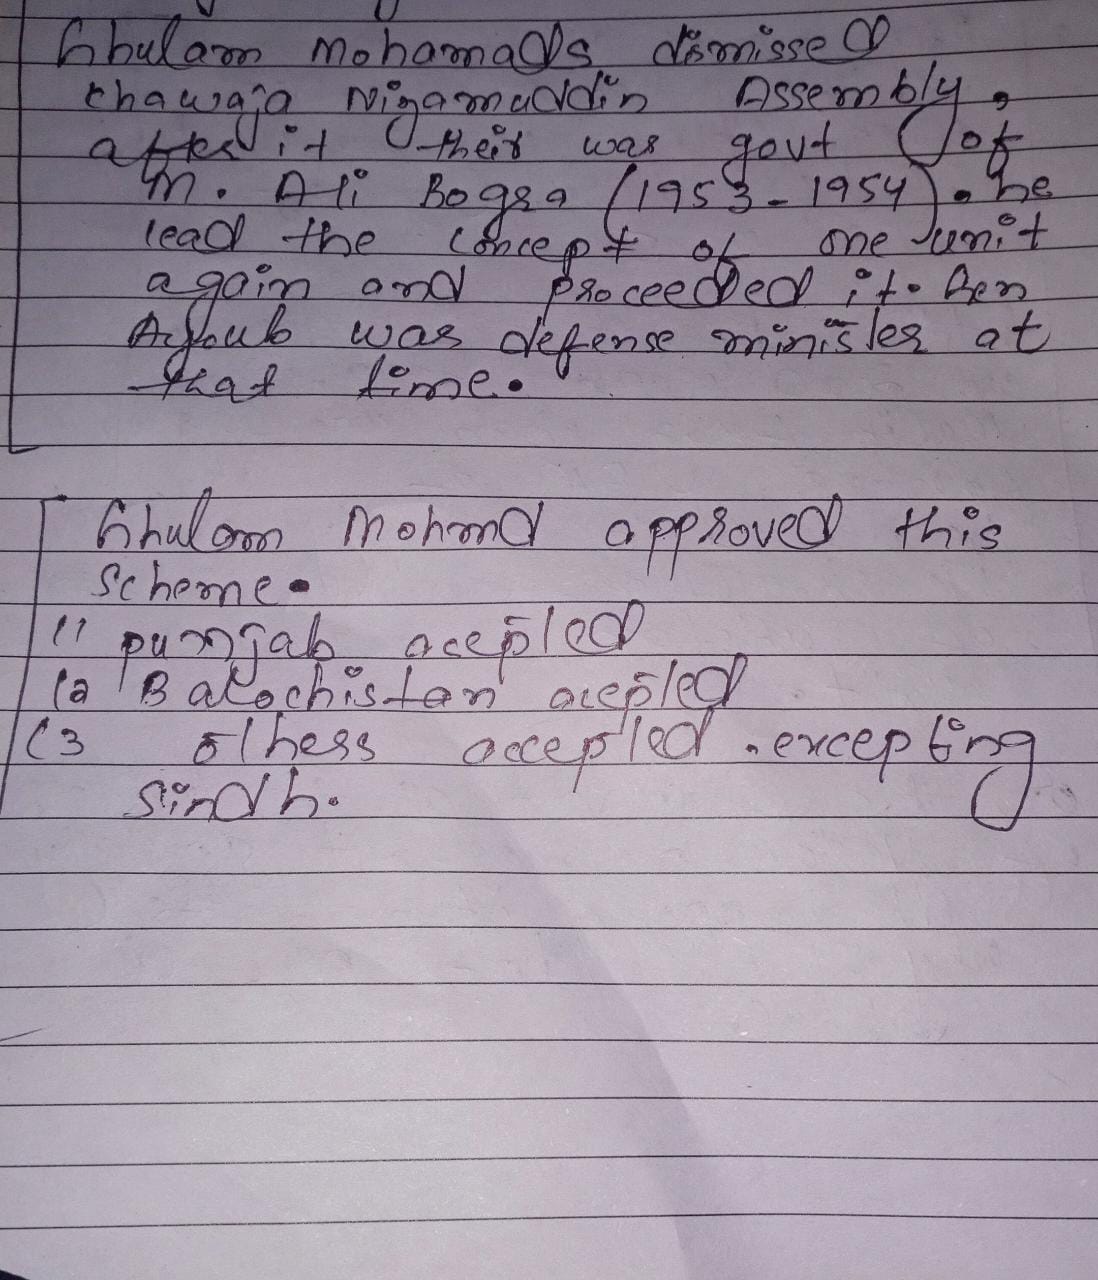 Ghulam Mohamads dismissed
Khawaja Nizamuddin Assembly,
after it their was govt of
M. Ali Bogra (1953-1954). he
lead the concept of one unit
again and proceeded it. Gen
Ayoub was defense minister at
that time.
Ghulam Mohmd approved this
Scheme.
(1 punjab acepted
(2 Balochistan acepted
(3 others accepted. excepting
Sindh.